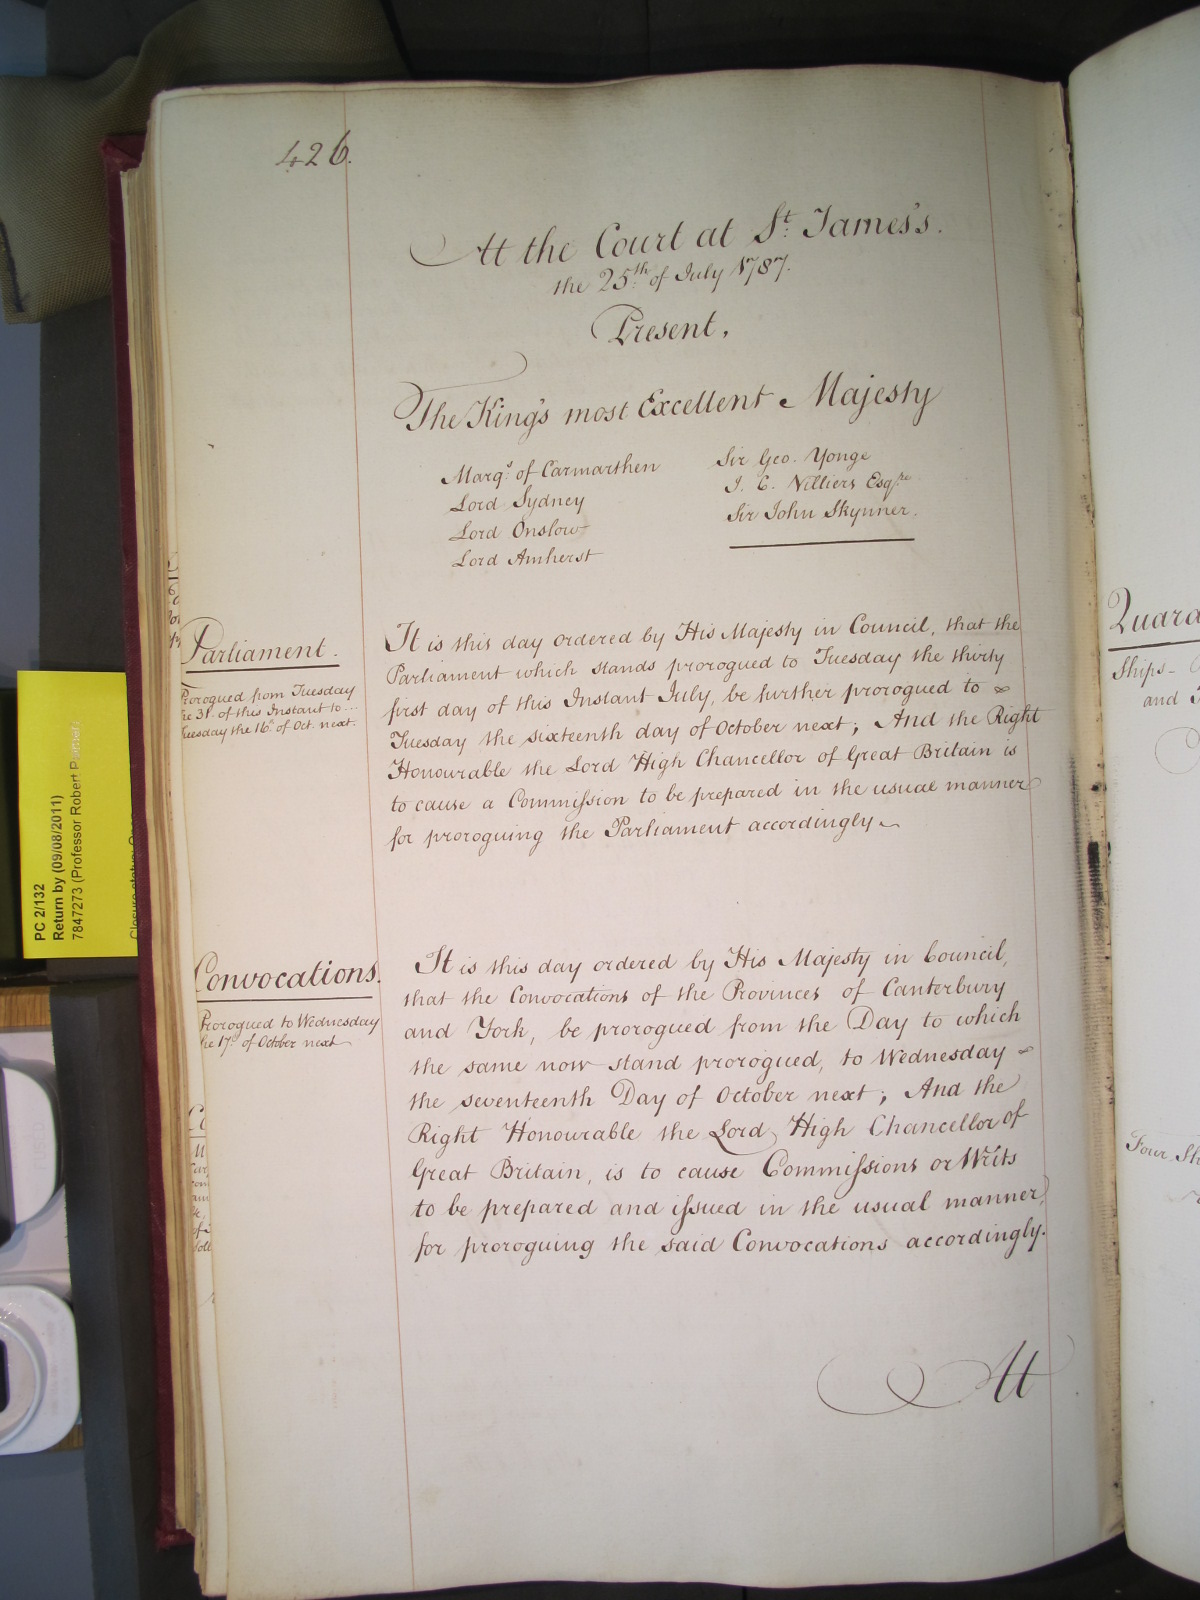 426.
At the Court at St. James's.
the 25th of July 1787.
Present,
The King's most Excellent Majesty
Marqs. of Carmarthen
Lord Sydney
Lord Onslow
Lord Amherst
Sir Geo. Yonge
J. C. Villiers Esqre
Sir John Skynner.
Parliament.
Prorogued from Tuesday
he 31st. of this Instant to...
Tuesday the 16th. of Oct. next.
It is this day ordered by His Majesty in Council, that the
Parliament which stands prorogued to Tuesday the thirty
first day of this Instant July, be further prorogued to
Tuesday the sixteenth day of October next; And the Right
Honourable the Lord High Chancellor of Great Britain is
to cause a Commission to be prepared in the usual manner
for proroguing the Parliament accordingly
Convocations.
Prorogued to Wednesday
he 17th. of October next
It is this day ordered by His Majesty in Council,
that the Convocations of the Provinces of Canterbury
and York, be prorogued from the Day to which
the same now stand prorogued, to Wednesday
the seventeenth Day of October next; And the
Right Honourable the Lord High Chancellor of
Great Britain, is to cause Commissions or Writs
to be prepared and issued in the usual manner,
for proroguing the said Convocations accordingly.
At
PC 2/132
Return by (09/08/2011)
7847273 (Professor Robert
Closure status:
Quara
Ships-
and
Four Sh